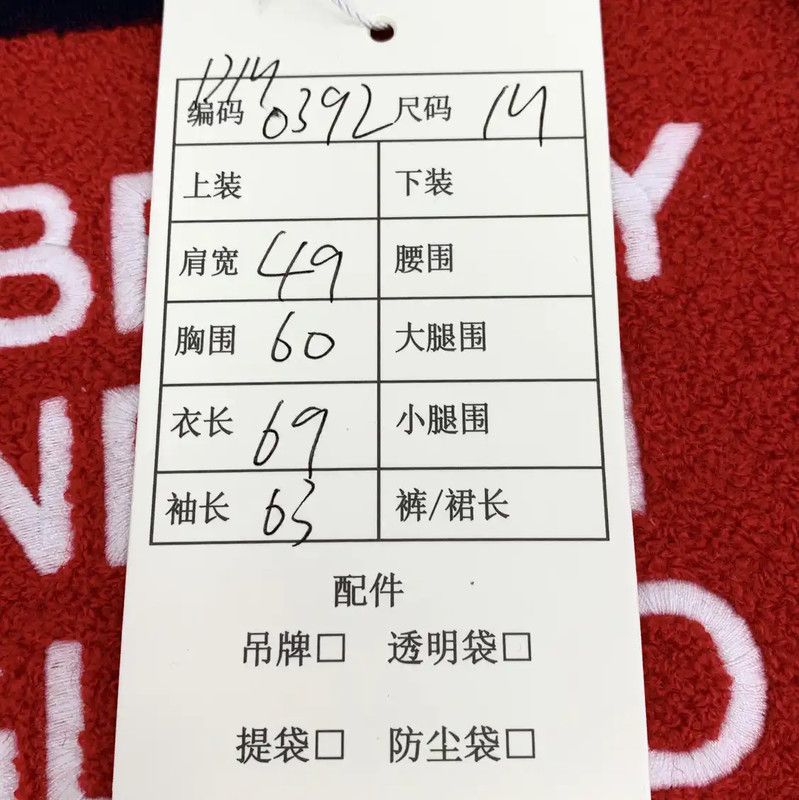 1214
编码 0392 尺码 14
上装 下装
肩宽 49 腰围
胸围 60 大腿围
衣长 69 小腿围
袖长 63 裤/裙长
配件
吊牌□ 透明袋□
提袋□ 防尘袋□